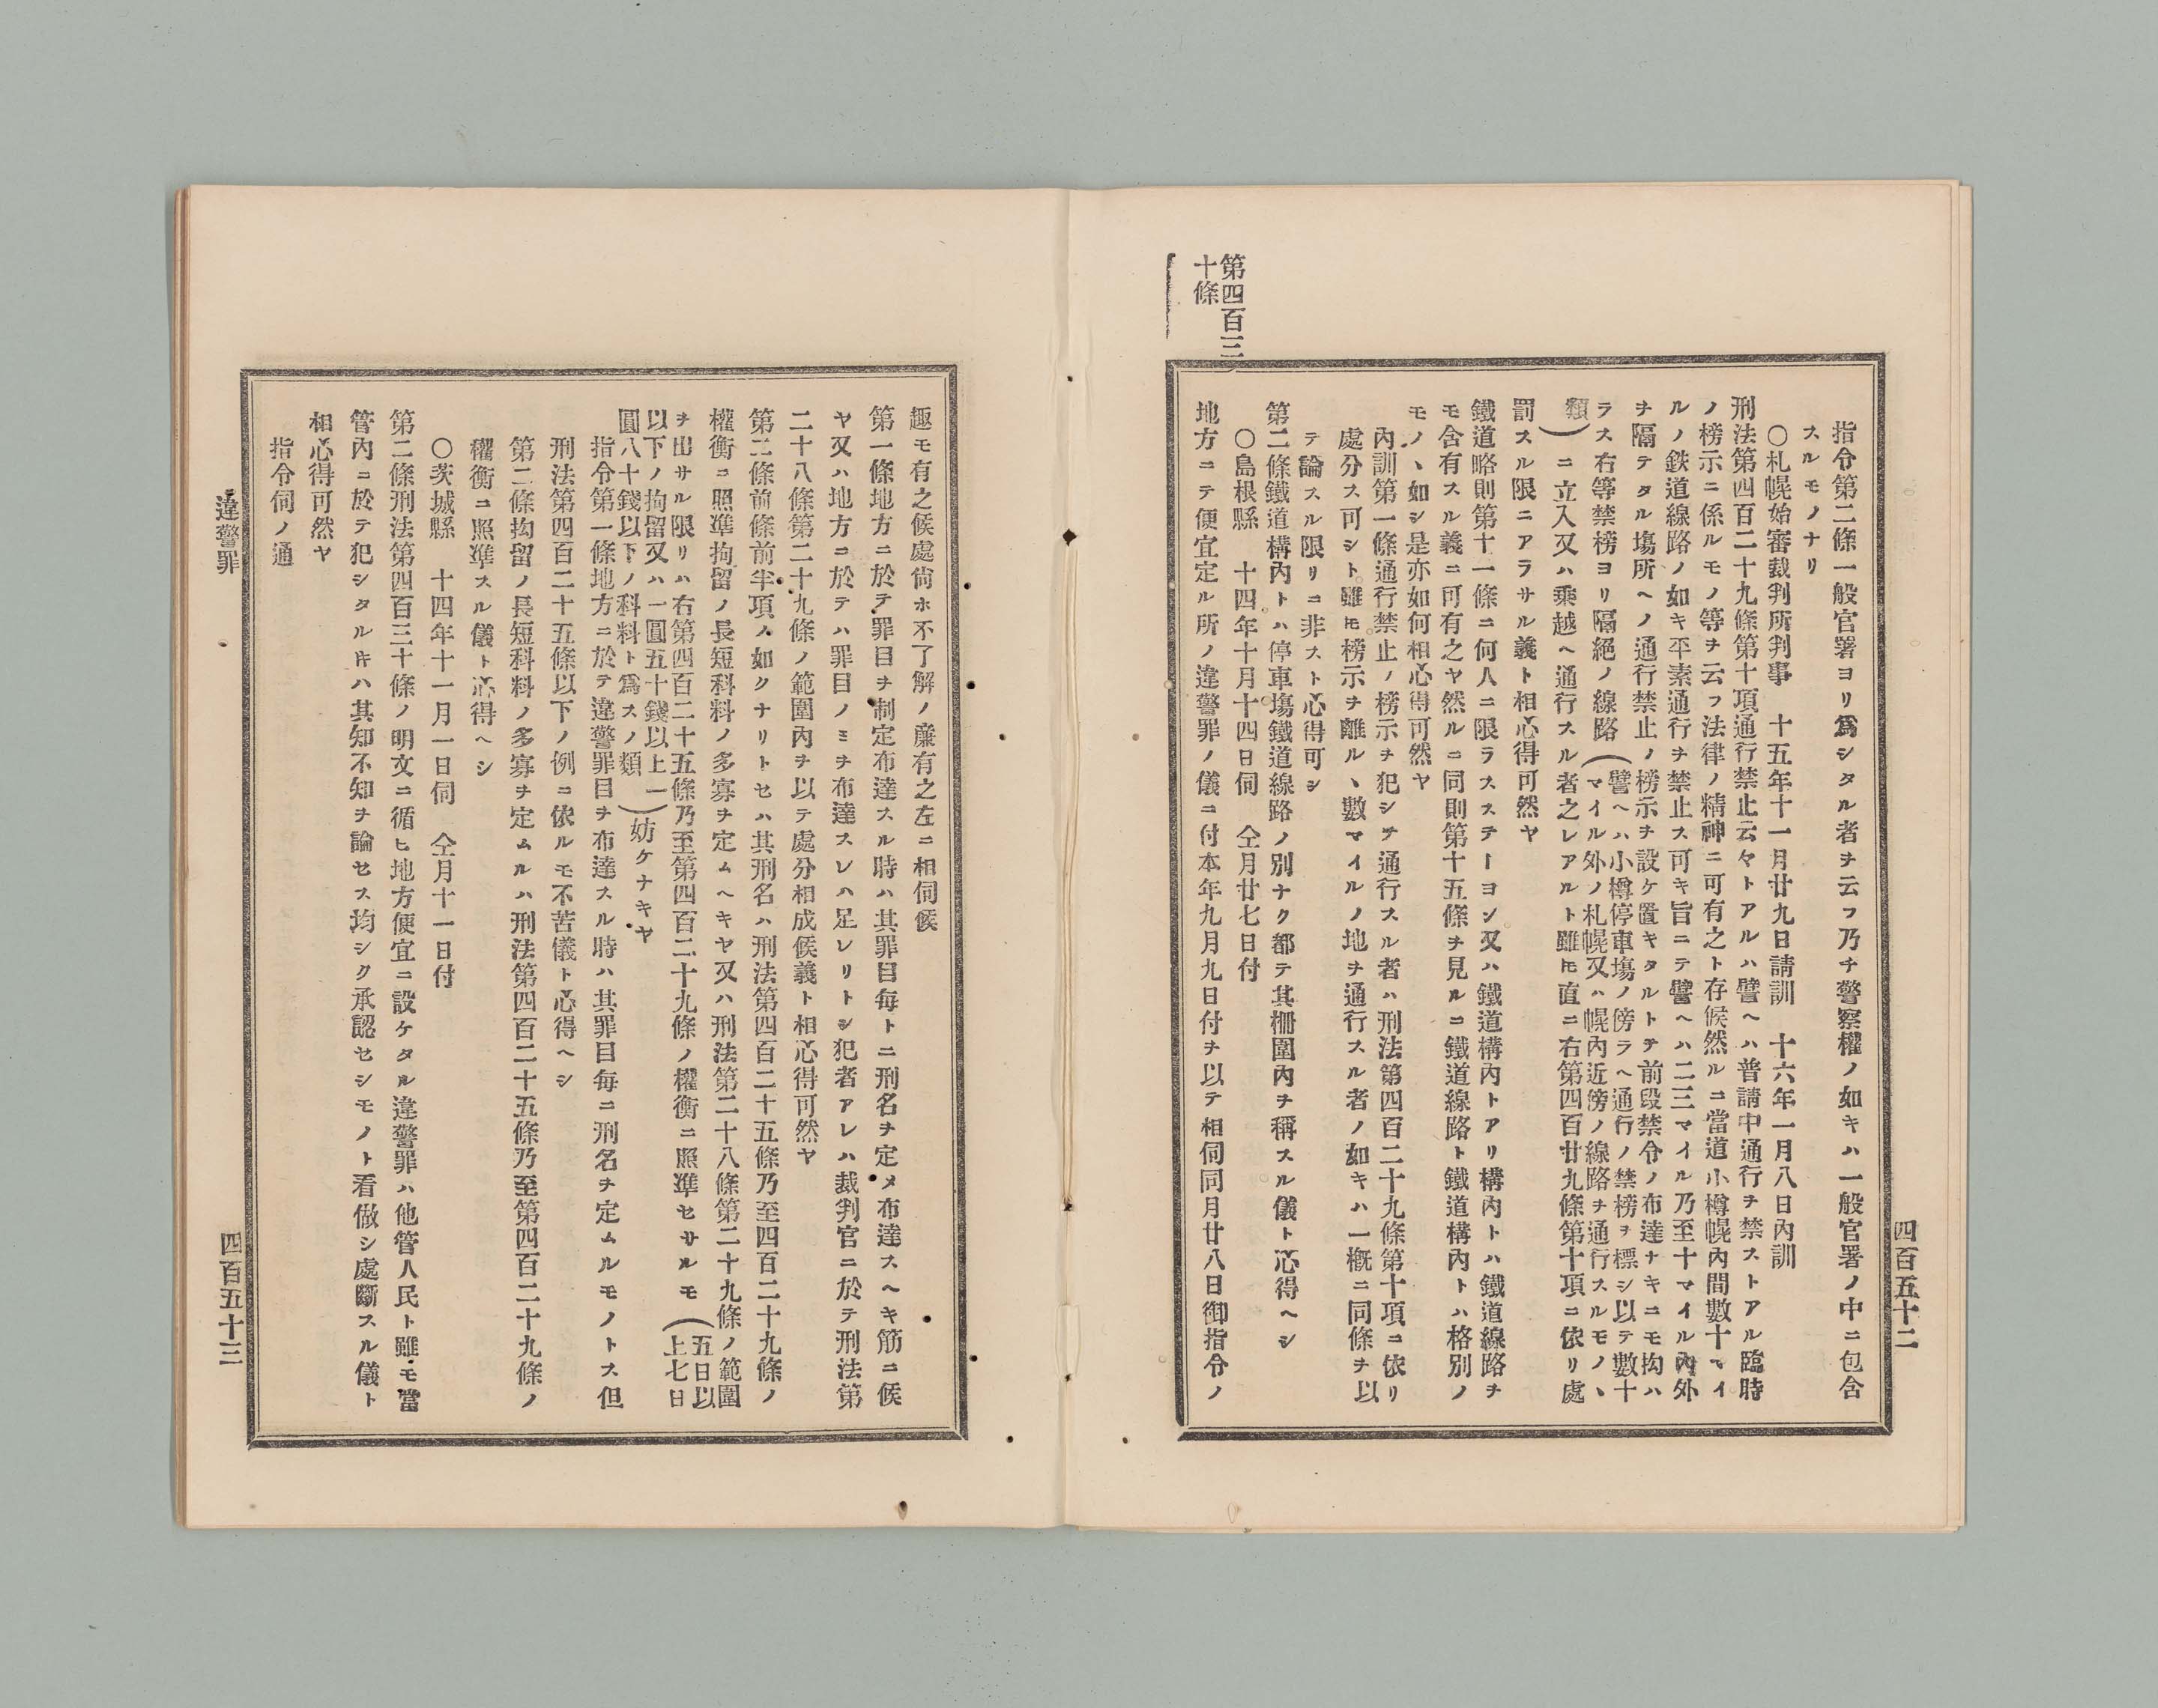 四百五十二
第四百三
十條
指令第二條一般官署ヨリ爲シタル者ヲ云フ乃チ警察權ノ如キハ一般官署ノ中ニ包含
スルモノナリ
〇札幌始審裁判所判事　十五年十一月廿九日請訓　十六年一月八日內訓
刑法第四百二十九條第十項通行禁止云々トアルハ譬ヘハ普請中通行ヲ禁ストアル臨時
ノ榜示ニ係ルモノ等ヲ云フ法律ノ精神ニ可有之ト存候然ルニ當道小樽幌內間數十マイ
ルノ鉄道線路ノ如キ平素通行ヲ禁止ス可キ旨ニテ譬ヘハ二三マイル乃至十マイル內外
ヲ隔テタル塲所ヘノ通行禁止ノ榜示ヲ設ケ置キタルトテ前段禁令ノ布達ナキニモ拘ハ
ラス右等禁榜ヨリ隔絕ノ線路（譬ヘハ小樽停車塲ノ傍ラヘ通行ノ禁榜ヲ標シ以テ數十
マイル外ノ札幌又ハ幌內近傍ノ線路ヲ通行スルモノヽ
類）ニ立入又ハ乘越ヘ通行スル者之レアルト雖𪜈直ニ右第四百廿九條第十項ニ依リ處
罰スル限ニアラサル義ト相心得可然ヤ
鐵道略則第十一條ニ何人ニ限ラスステーヨン又ハ鐵道構內トアリ構內トハ鐵道線路ヲ
モ含有スル義ニ可有之ヤ然ルニ同則第十五條ヲ見ルニ鐵道線路ト鐵道構內トハ格別ノ
モノヽ如シ是亦如何相心得可然ヤ
內訓第一條通行禁止ノ榜示ヲ犯シテ通行スル者ハ刑法第四百二十九條第十項ニ依リ
處分ス可シト雖𪜈榜示ヲ離ルヽ數マイルノ地ヲ通行スル者ノ如キハ一概ニ同條ヲ以
テ論スル限リニ非スト心得可シ
第二條鐵道構內トハ停車塲鐵道線路ノ別ナク都テ其柵圍內ヲ稱スル儀ト心得ヘシ
〇島根縣　十四年十月十四日伺　仝月廿七日付
地方ニテ便宜定ル所ノ違警罪ノ儀ニ付本年九月九日付ヲ以テ相伺同月廿八日御指令ノ
趣モ有之候處尙ホ不了解ノ廉有之左ニ相伺候
第一條地方ニ於テ罪目ヲ制定布達スル時ハ其罪目每トニ刑名ヲ定メ布達スヘキ筋ニ候
ヤ又ハ地方ニ於テハ罪目ノミヲ布達スレハ足レリトシ犯者アレハ裁判官ニ於テ刑法第
二十八條第二十九條ノ範圍內ヲ以テ處分相成候義ト相心得可然ヤ
第二條前條前半項ノ如クナリトセハ其刑名ハ刑法第四百二十五條乃至四百二十九條ノ
權衡ニ照準拘留ノ長短科料ノ多寡ヲ定ムヘキヤ又ハ刑法第二十八條第二十九條ノ範圍
ヲ出サル限リハ右第四百二十五條乃至第四百二十九條ノ權衡ニ照準セサルモ（五日以
上七日
以下ノ拘留又ハ一圓五十錢以上一
圓八十錢以下ノ科料ト爲スノ類）妨ケナキヤ
指令第一條地方ニ於テ違警罪目ヲ布達スル時ハ其罪目每ニ刑名ヲ定ムルモノトス但
刑法第四百二十五條以下ノ例ニ依ルモ不苦儀ト心得ヘシ
第二條拘留ノ長短科料ノ多寡ヲ定ムルハ刑法第四百二十五條乃至第四百二十九條ノ
權衡ニ照準スル儀ト心得ヘシ
〇茨城縣　十四年十一月一日伺　仝月十一日付
第二條刑法第四百三十條ノ明文ニ循ヒ地方便宜ニ設ケタル違警罪ハ他管人民ト雖モ當
管內ニ於テ犯シタル𬼀ハ其知不知ヲ論セス均シク承認セシモノト看做シ處斷スル儀ト
相心得可然ヤ
指令伺ノ通
違警罪
四百五十三